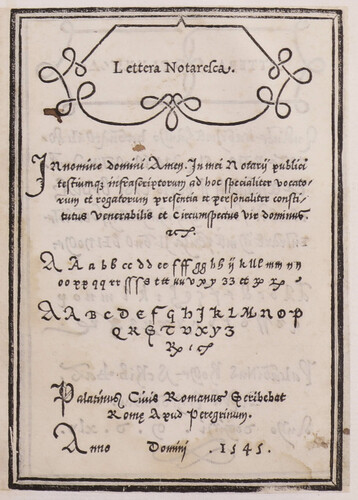 Lettera Notaresca.
In nomine domini Amen. In mei Notarij publici
testiumq; infrascriptorum ad hoc specialiter vocato-
rum et rogatorum presentia et personaliter consti-
tutus venerabilis et Circumspectus vir dominus
etc.
A A a b b c c d d e e f f f g g h h ij k ll l m m n n
o o p p q q r r s s s s t t t u u v x y z z et
A A B C D E F G H I K L M N O P
Q R S T V X Y Z
Palatinus Civis Romanus Scribebat
Romę Apud Peregrinum.
Anno Domini . 1545.